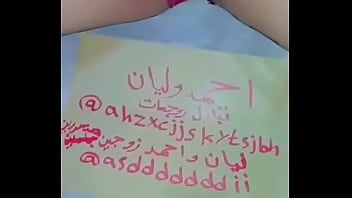 احمد وليان
تبادل زوجات
@ahzxcjjskytsjbh
ليان واحمد زوجين
@asddddddd ii